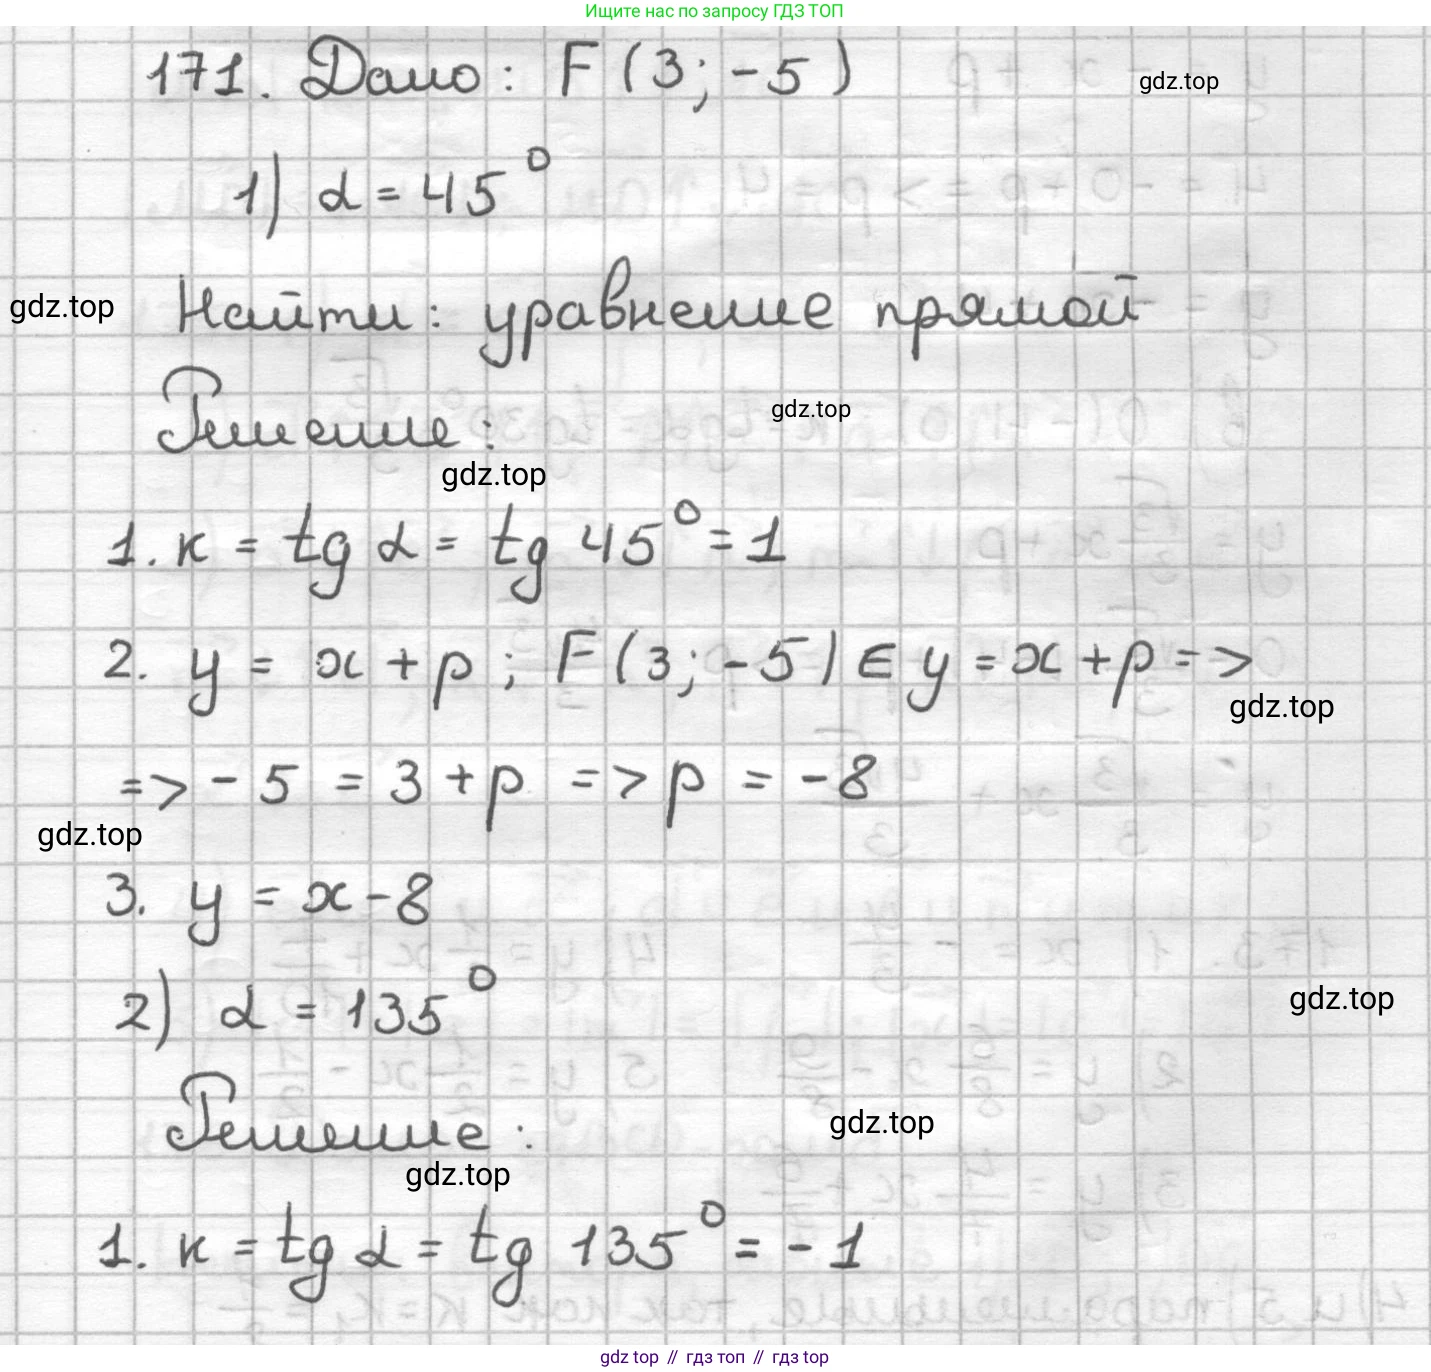 Ищите нас по запросу ГДЗ ТОП
171. Дано: F (3; -5)
gdz.top
1) α = 45°
gdz.top
Найти: уравнение прямой
gdz.top
Решение:
gdz.top
1. к = tg α = tg 45° = 1
2. y = x + p ; F (3; -5) ∈ y = x + p =>
gdz.top
=> - 5 = 3 + p => p = -8
gdz.top
3. y = x - 8
2) α = 135°
gdz.top
Решение:
gdz.top
gdz.top
1. к = tg α = tg 135° = - 1
gdz top // гдз топ // gdz top